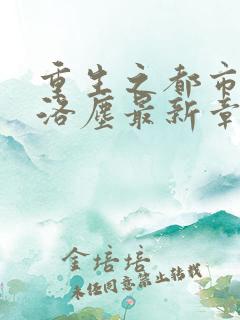 重生之都市
洛塵最新章
金培培
未任同意禁止转载